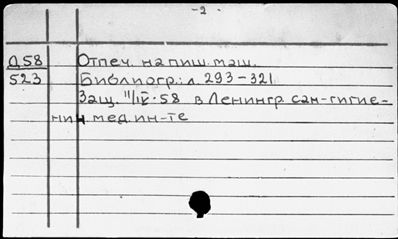 -2-
Д58 Отпеч. на пиш. маш.
523 Библиогр.: л. 293-321
Защ. 11/IV-58 в Ленингр. сан-гигие-
нич мед. ин-те